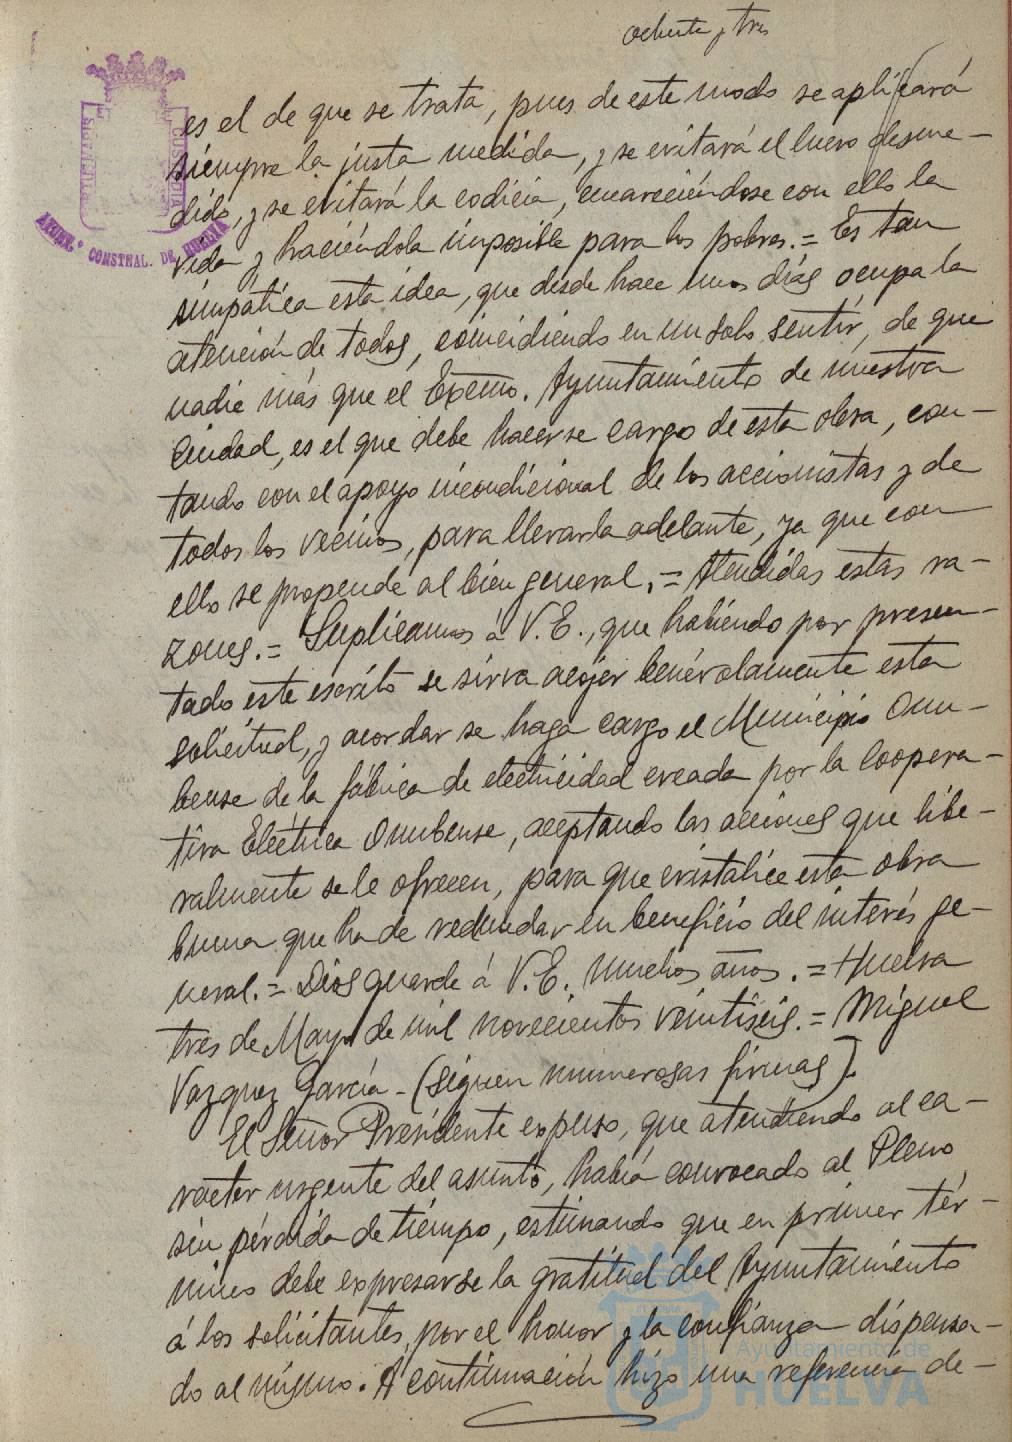 ochenta y tres
es el de que se trata, pues de este modo se aplicará
siempre la justa medida, y se evitará el lucro desme-
dido, y se evitará la codicia, encareciéndose con ello la
vida y haciéndola imposible para los pobres.= Es tan
simpática esta idea, que desde hace unos días ocupa la
atención de todos, coincidiendo en un solo sentir, de que
nadie más que el Excmo. Ayuntamiento de nuestra
Ciudad, es el que debe hacerse cargo de esta obra, con-
tando con el apoyo incondicional de los accionistas y de
todos los vecinos, para llevarla adelante, ya que con
ello se propende al bien general.= Atendidas estas ra-
zones.= Suplicamos á V.E., que habiendo por presen-
tado este escrito se sirva acojer benévolamente esta
solicitud, y acordar se haga cargo el Municipio Onu-
bense de la fábrica de electricidad creada por la Coopera-
tiva Eléctrica Onubense, aceptando las acciones que libe-
ralmente se le ofrecen, para que cristalice esta obra
buena que ha de redundar en beneficio del interés ge-
neral.= Dios guarde á V.E. muchos años.= Huelva
tres de Mayo de mil novecientos veintiseis.= Miguel
Vazquez García - (siguen numerosas firmas).
El Señor Presidente expuso, que atendiendo al ca-
racter urgente del asunto, había convocado al Pleno
sin pérdida de tiempo, estimando que en primer tér-
mino debe expresarse la gratitud del Ayuntamiento
á los solicitantes, por el honor y la confianza dispensa-
do al mismo. A continuación hizo una referencia de-
ARCHV.º CONSTNAL. DE HUELVA
Ayuntamiento de
HUELVA